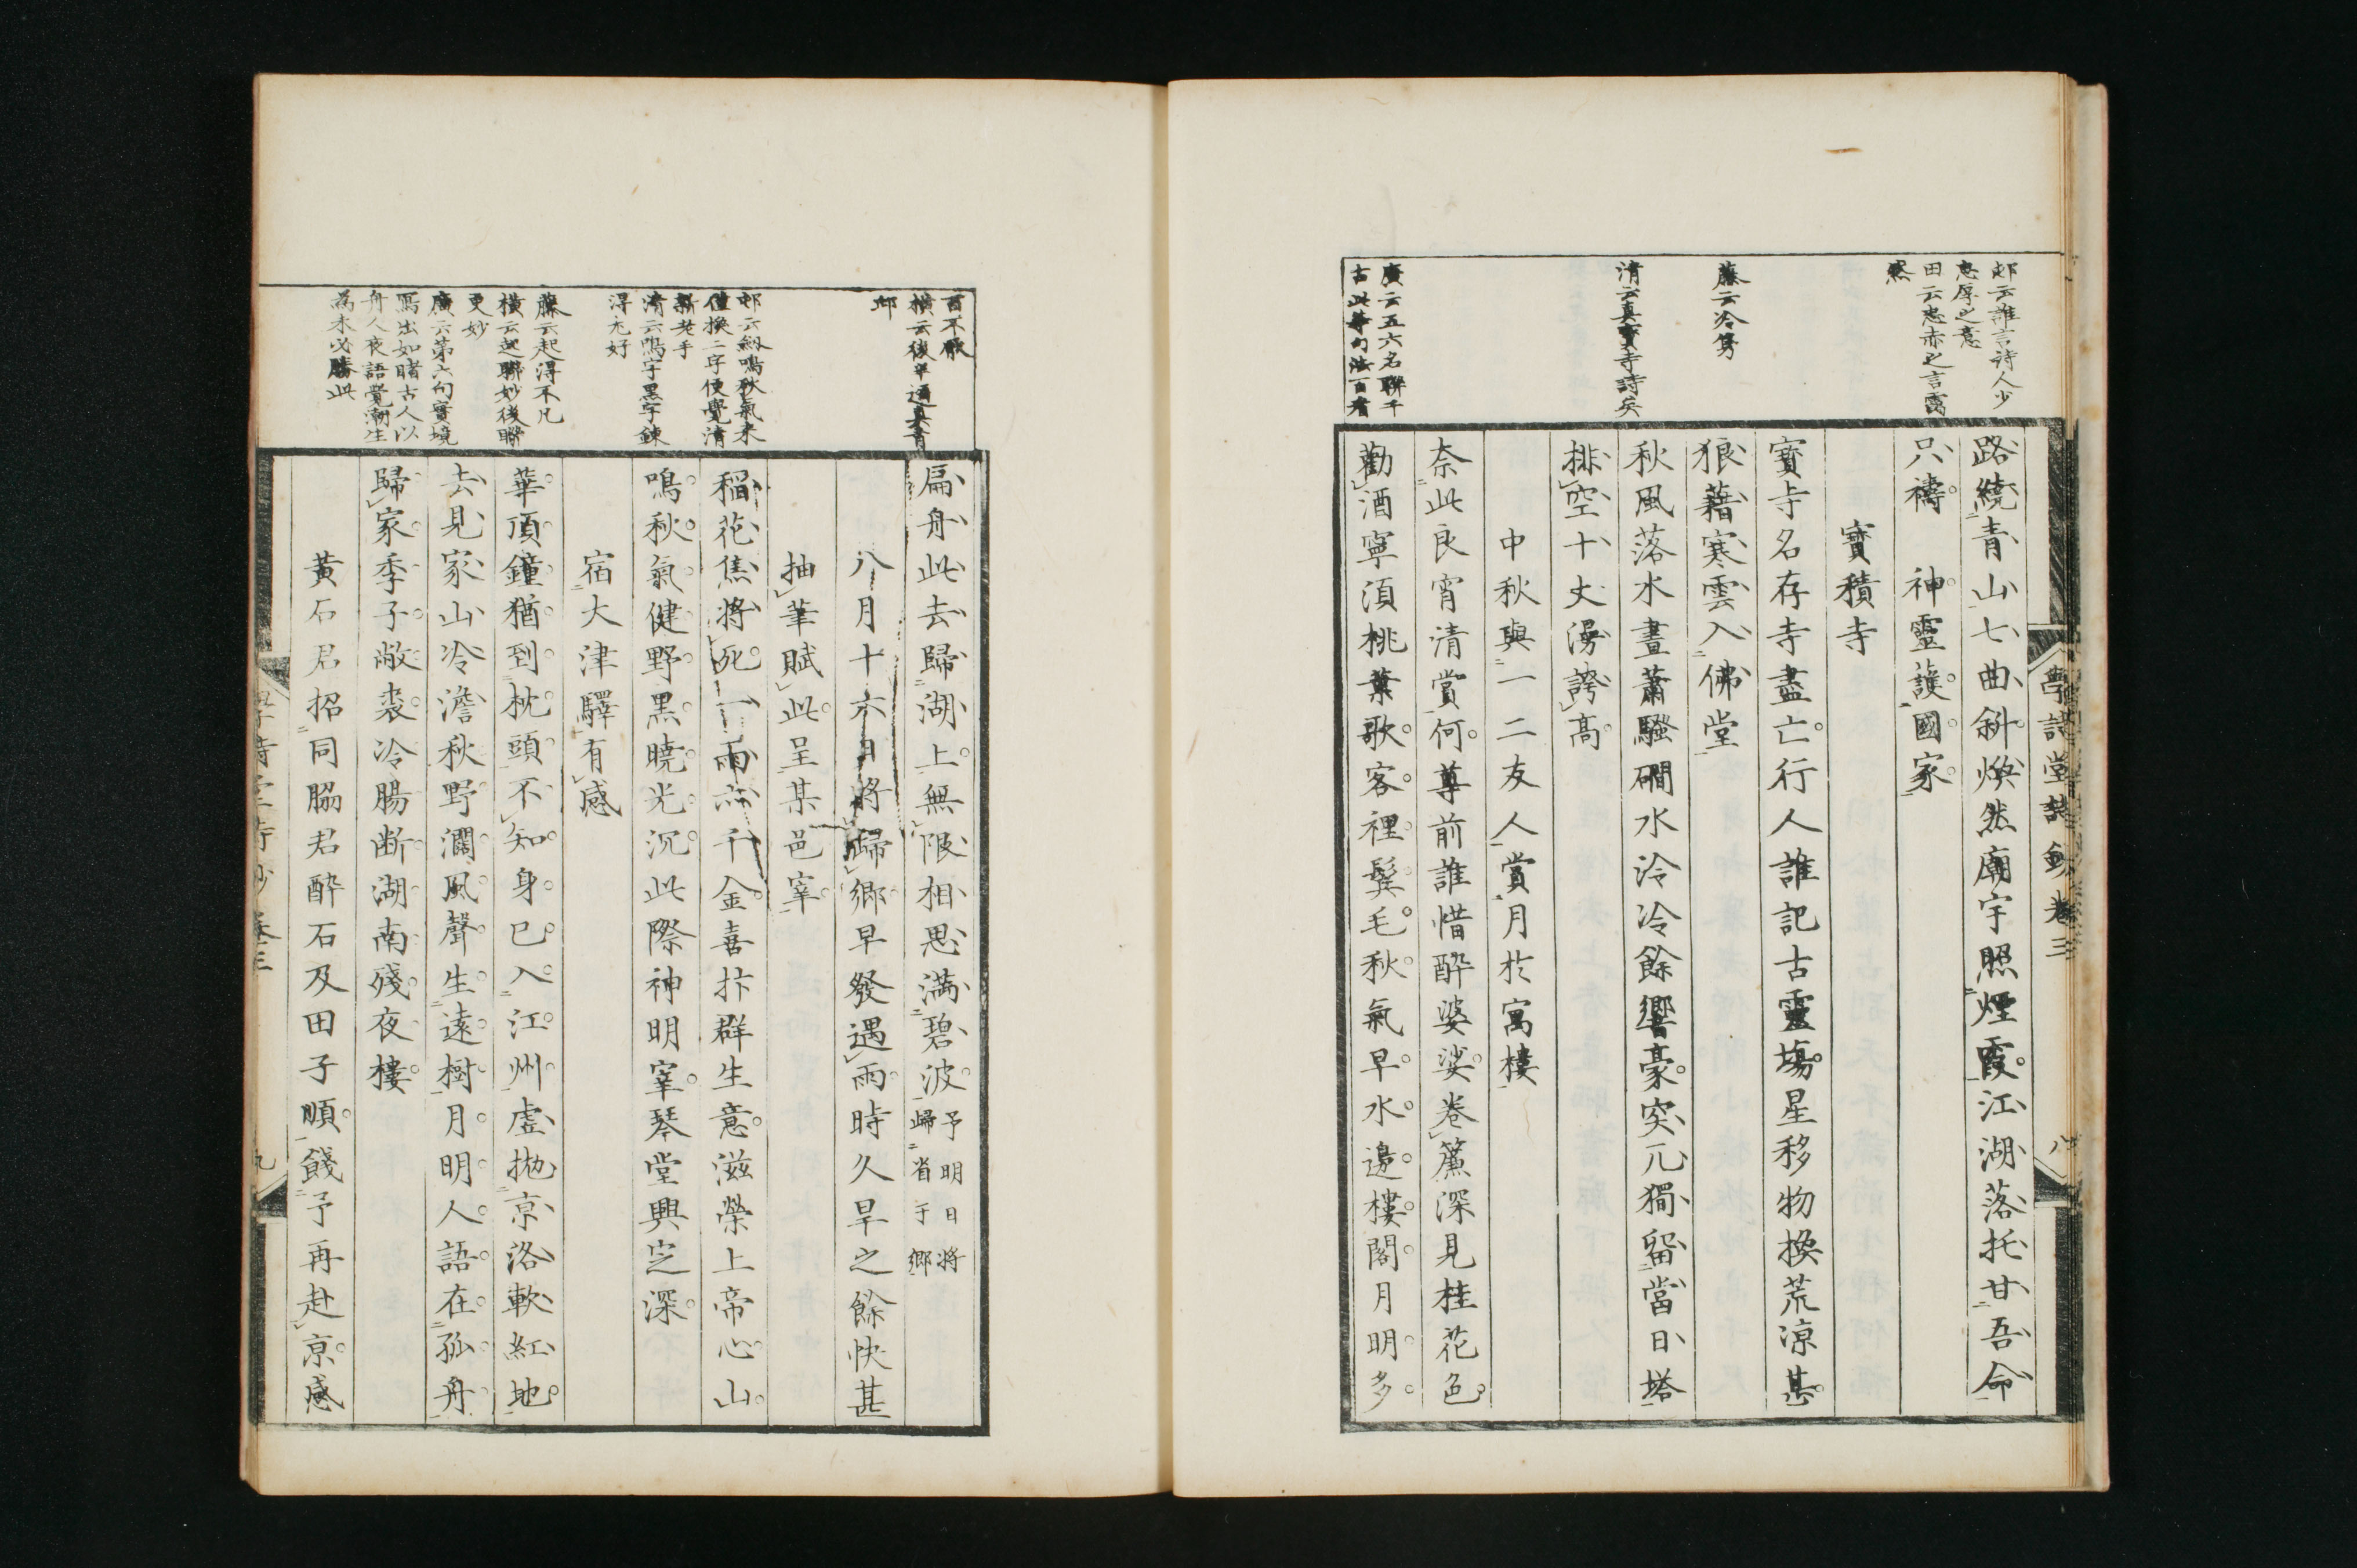 邨云誰言詩人少
忠厚之意
田云忠赤之言靄
然
藤云冷雋
清云真寶寺詩矣
廣云五六名聯千
古此等句法百看
學詩堂詩鈔卷三
八
路繞青山七曲斜煥然廟宇照煙霞江湖落托甘吾命
只禱 神靈護國家
寶積寺
寶寺名存寺盡亡行人誰記古靈場星移物換荒涼甚
狼藉寒雲入佛堂
秋風落木晝蕭騷磵水泠泠餘響豪突兀獨留當日塔
排空十丈漫誇高
中秋與一二友人賞月於寓樓
奈此良宵清賞何尊前誰惜醉婆娑卷簾深見桂花色
勸酒寧須桃葉歌客裡鬓毛秋氣早水邊樓閣月明多
百不厭
橫云後半逼真青
邱
邨云劔鳴秋氣來
僅換二字便覺清
新老手
清云鳴字黑字鍊
得尤好
藤云起得不凡
橫云起聯妙後聯
更妙
廣云第六句實境
寫出如睹古人以
舟人夜語覺潮生
為未必勝此
扁舟此去歸湖上無限相思滿碧波予明日將
歸省于鄉
八月十六日將歸鄉早發遇雨時久旱之餘快甚
抽筆賦此呈某邑宰
稲花焦將死一雨六千金喜抃群生意滋榮上帝心山
鳴秋氣健野黑曉光沉此際神明宰琴堂興定深
宿大津驛有感
華頂鐘猶到枕頭不知身已入江州虛拋京洛軟紅地
去見家山冷澹秋野濶風聲生遠樹月明人語在孤舟
歸家季子敝裘冷腸断湖南殘夜樓
黃石君招同脇君醉石及田子順餞予再赴京感
學詩堂詩鈔卷三
九